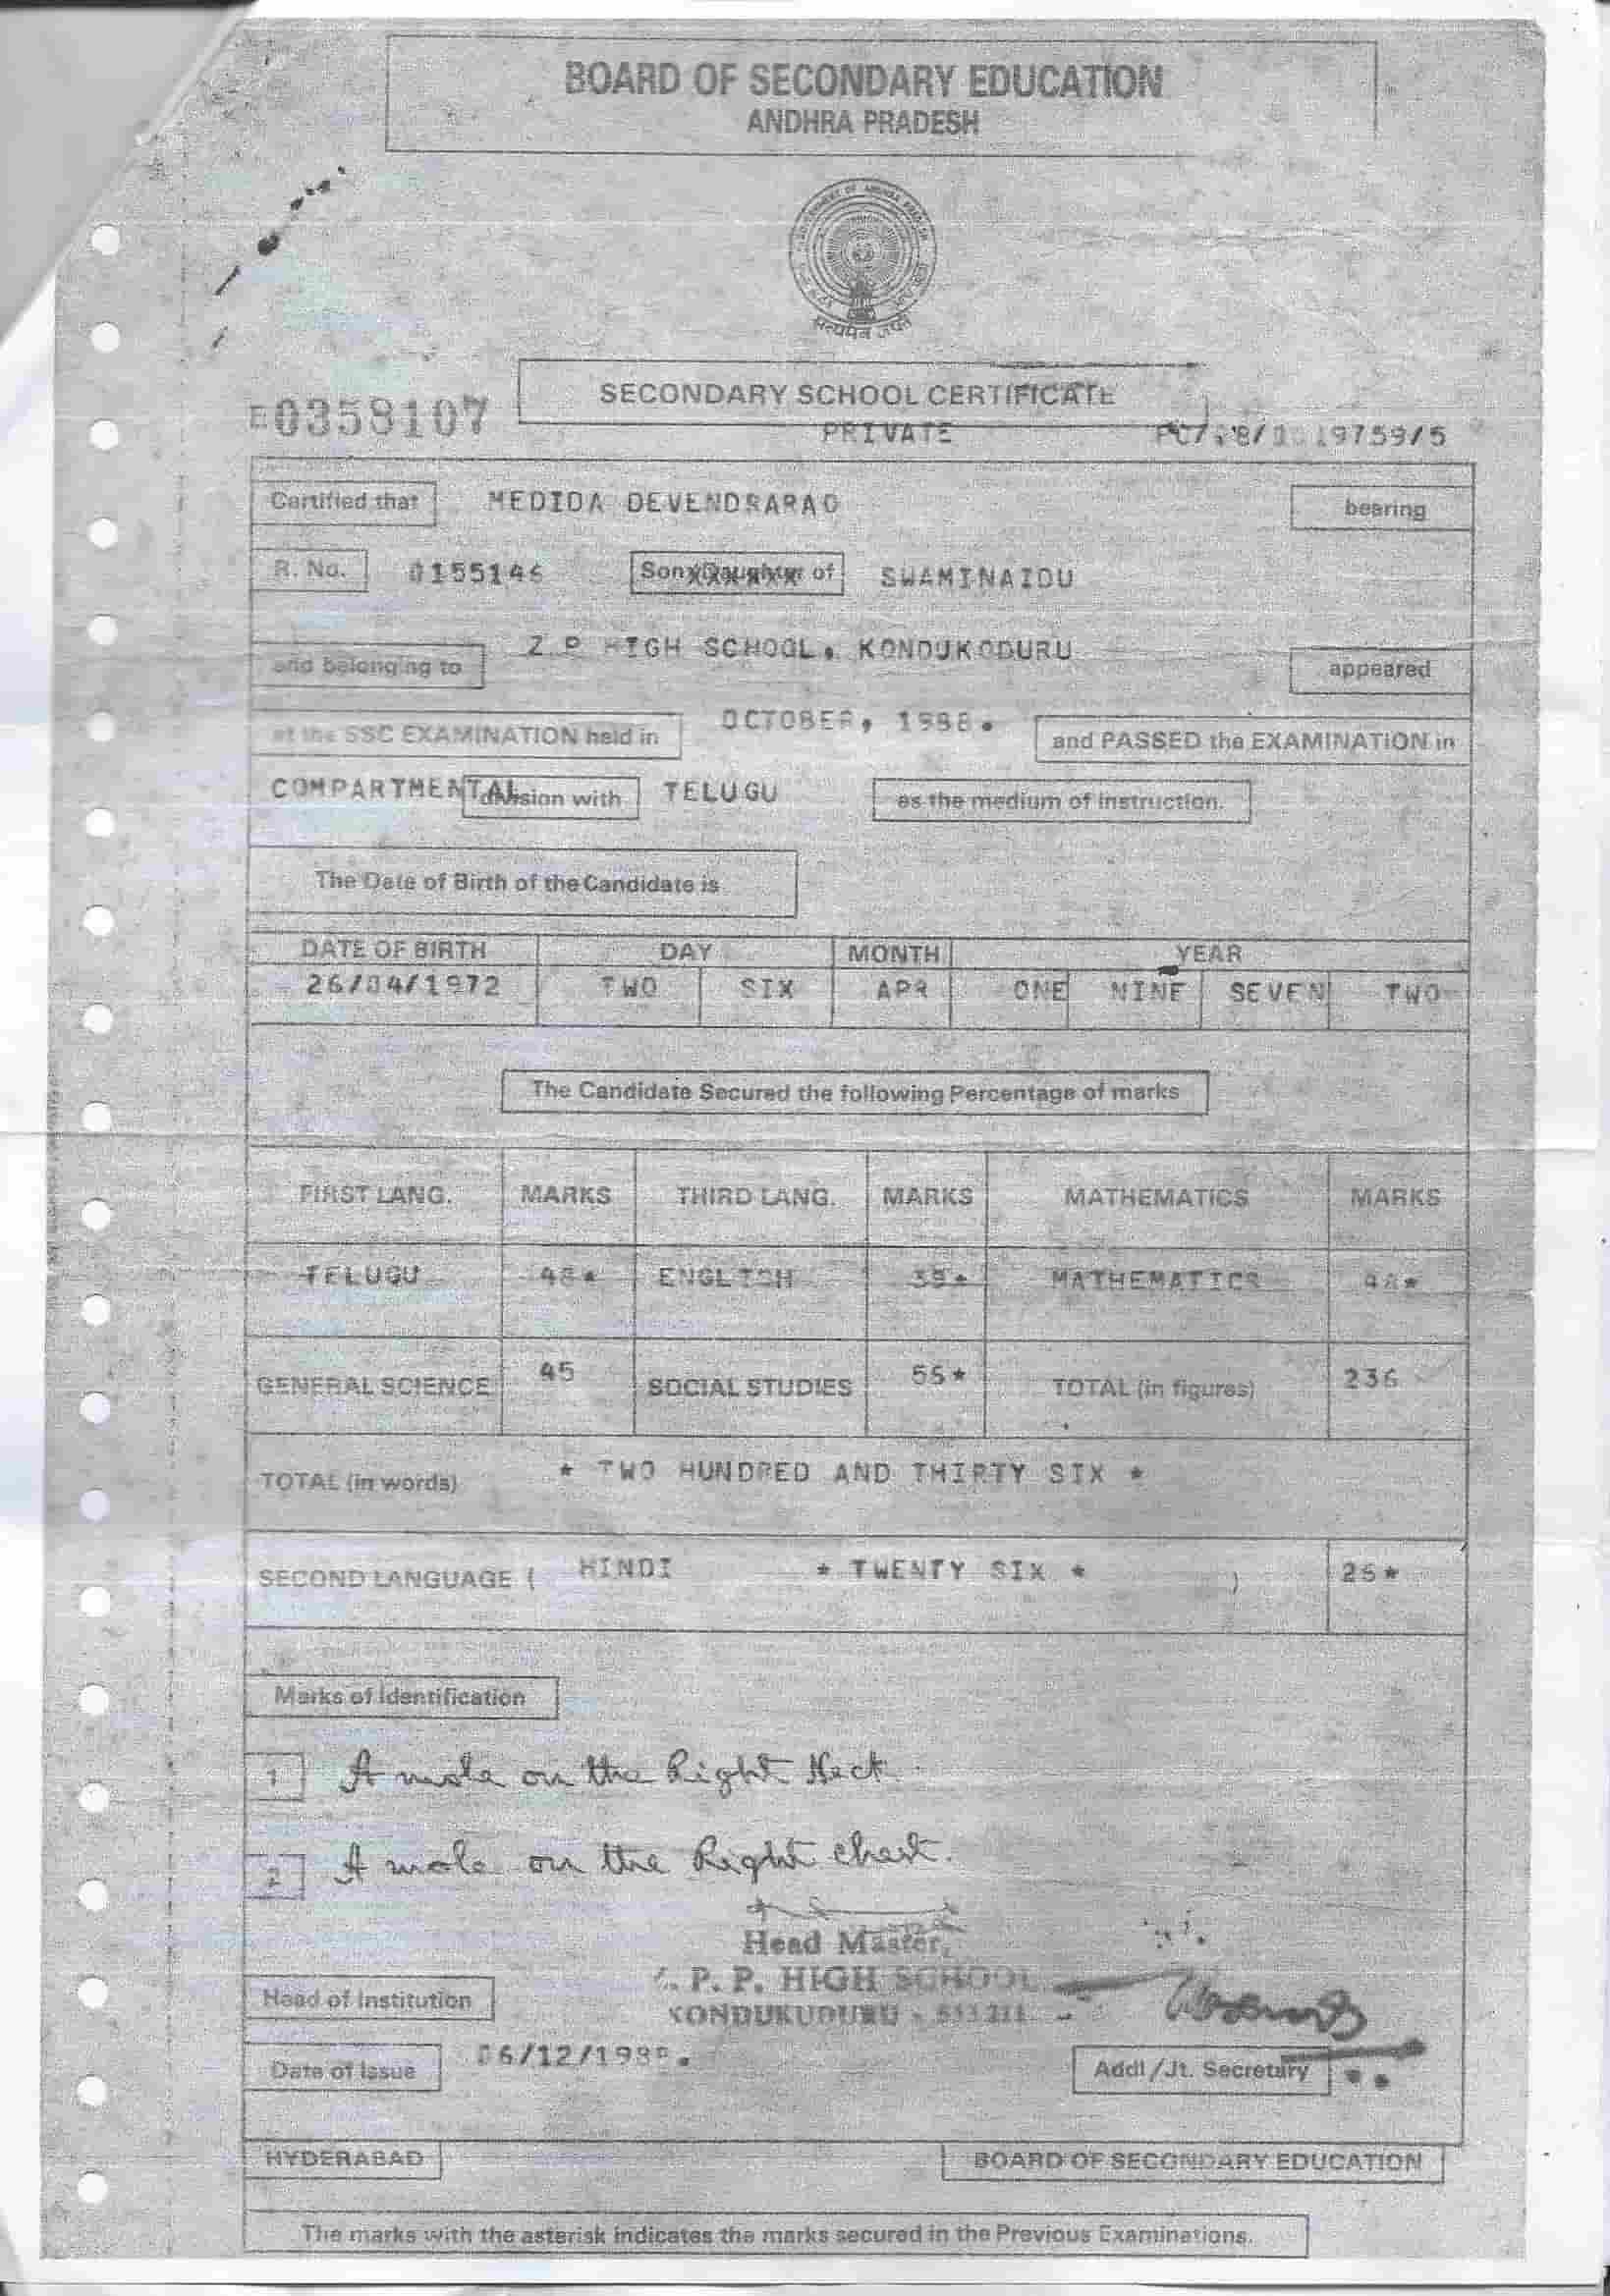 BOARD OF SECONDARY EDUCATION
ANDHRA PRADESH
सत्यमेव जयते
SECONDARY SCHOOL CERTIFICATE
E0358107
PRIVATE
9759/5
Certified that MEDIDA DEVENDRARAO bearing
R. No. 0155146 Son/Daughter of SWAMINAIDU
and belonging to Z P HIGH SCHOOL, KONDUKODURU appeared
at the SSC EXAMINATION held in OCTOBER, 1988. and PASSED the EXAMINATION in
COMPARTMENTAL division with TELUGU as the medium of instruction.
The Date of Birth of the Candidate is
DATE OF BIRTH DAY MONTH YEAR
26/04/1972 TWO SIX APR ONE NINE SEVEN TWO
The Candidate Secured the following Percentage of marks
FIRST LANG. MARKS THIRD LANG. MARKS MATHEMATICS MARKS
TELUGU 48* ENGLISH 39* MATHEMATICS 48*
GENERAL SCIENCE 45 SOCIAL STUDIES 56* TOTAL (in figures) 236
TOTAL (in words) * TWO HUNDRED AND THIRTY SIX *
SECOND LANGUAGE ( HINDI * TWENTY SIX * ) 26*
Marks of Identification
1 A mole on the Right Neck.
2 A mole on the Right chest.
Head Master,
Z. P. P. HIGH SCHOOL
Head of Institution KONDUKUDURU -
Date of Issue 06/12/1988. Addl/Jt. Secretary
HYDERABAD BOARD OF SECONDARY EDUCATION
The marks with the asterisk indicates the marks secured in the Previous Examinations.